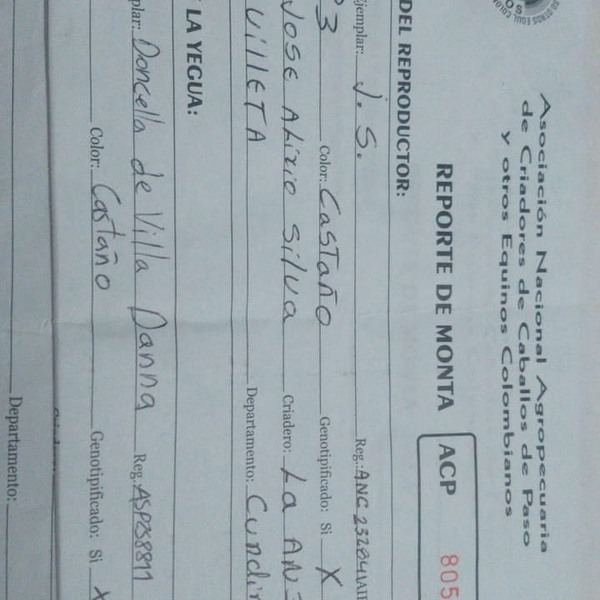 Asociación Nacional Agropecuaria
de Criadores de Caballos de Paso
y otros Equinos Colombianos
REPORTE DE MONTA ACP 805
DEL REPRODUCTOR:
Ejemplar: J. S. Reg.: ANC 23284
3 Color: Castaño Genotipificado: Si X
Jose Alirio Silva Criadero: La
VilleTA Departamento: Cundi
LA YEGUA:
plar: Doncella de Villa Danna Reg: ASP258811
Color: Castaño Genotipificado: Si X
Departamento: